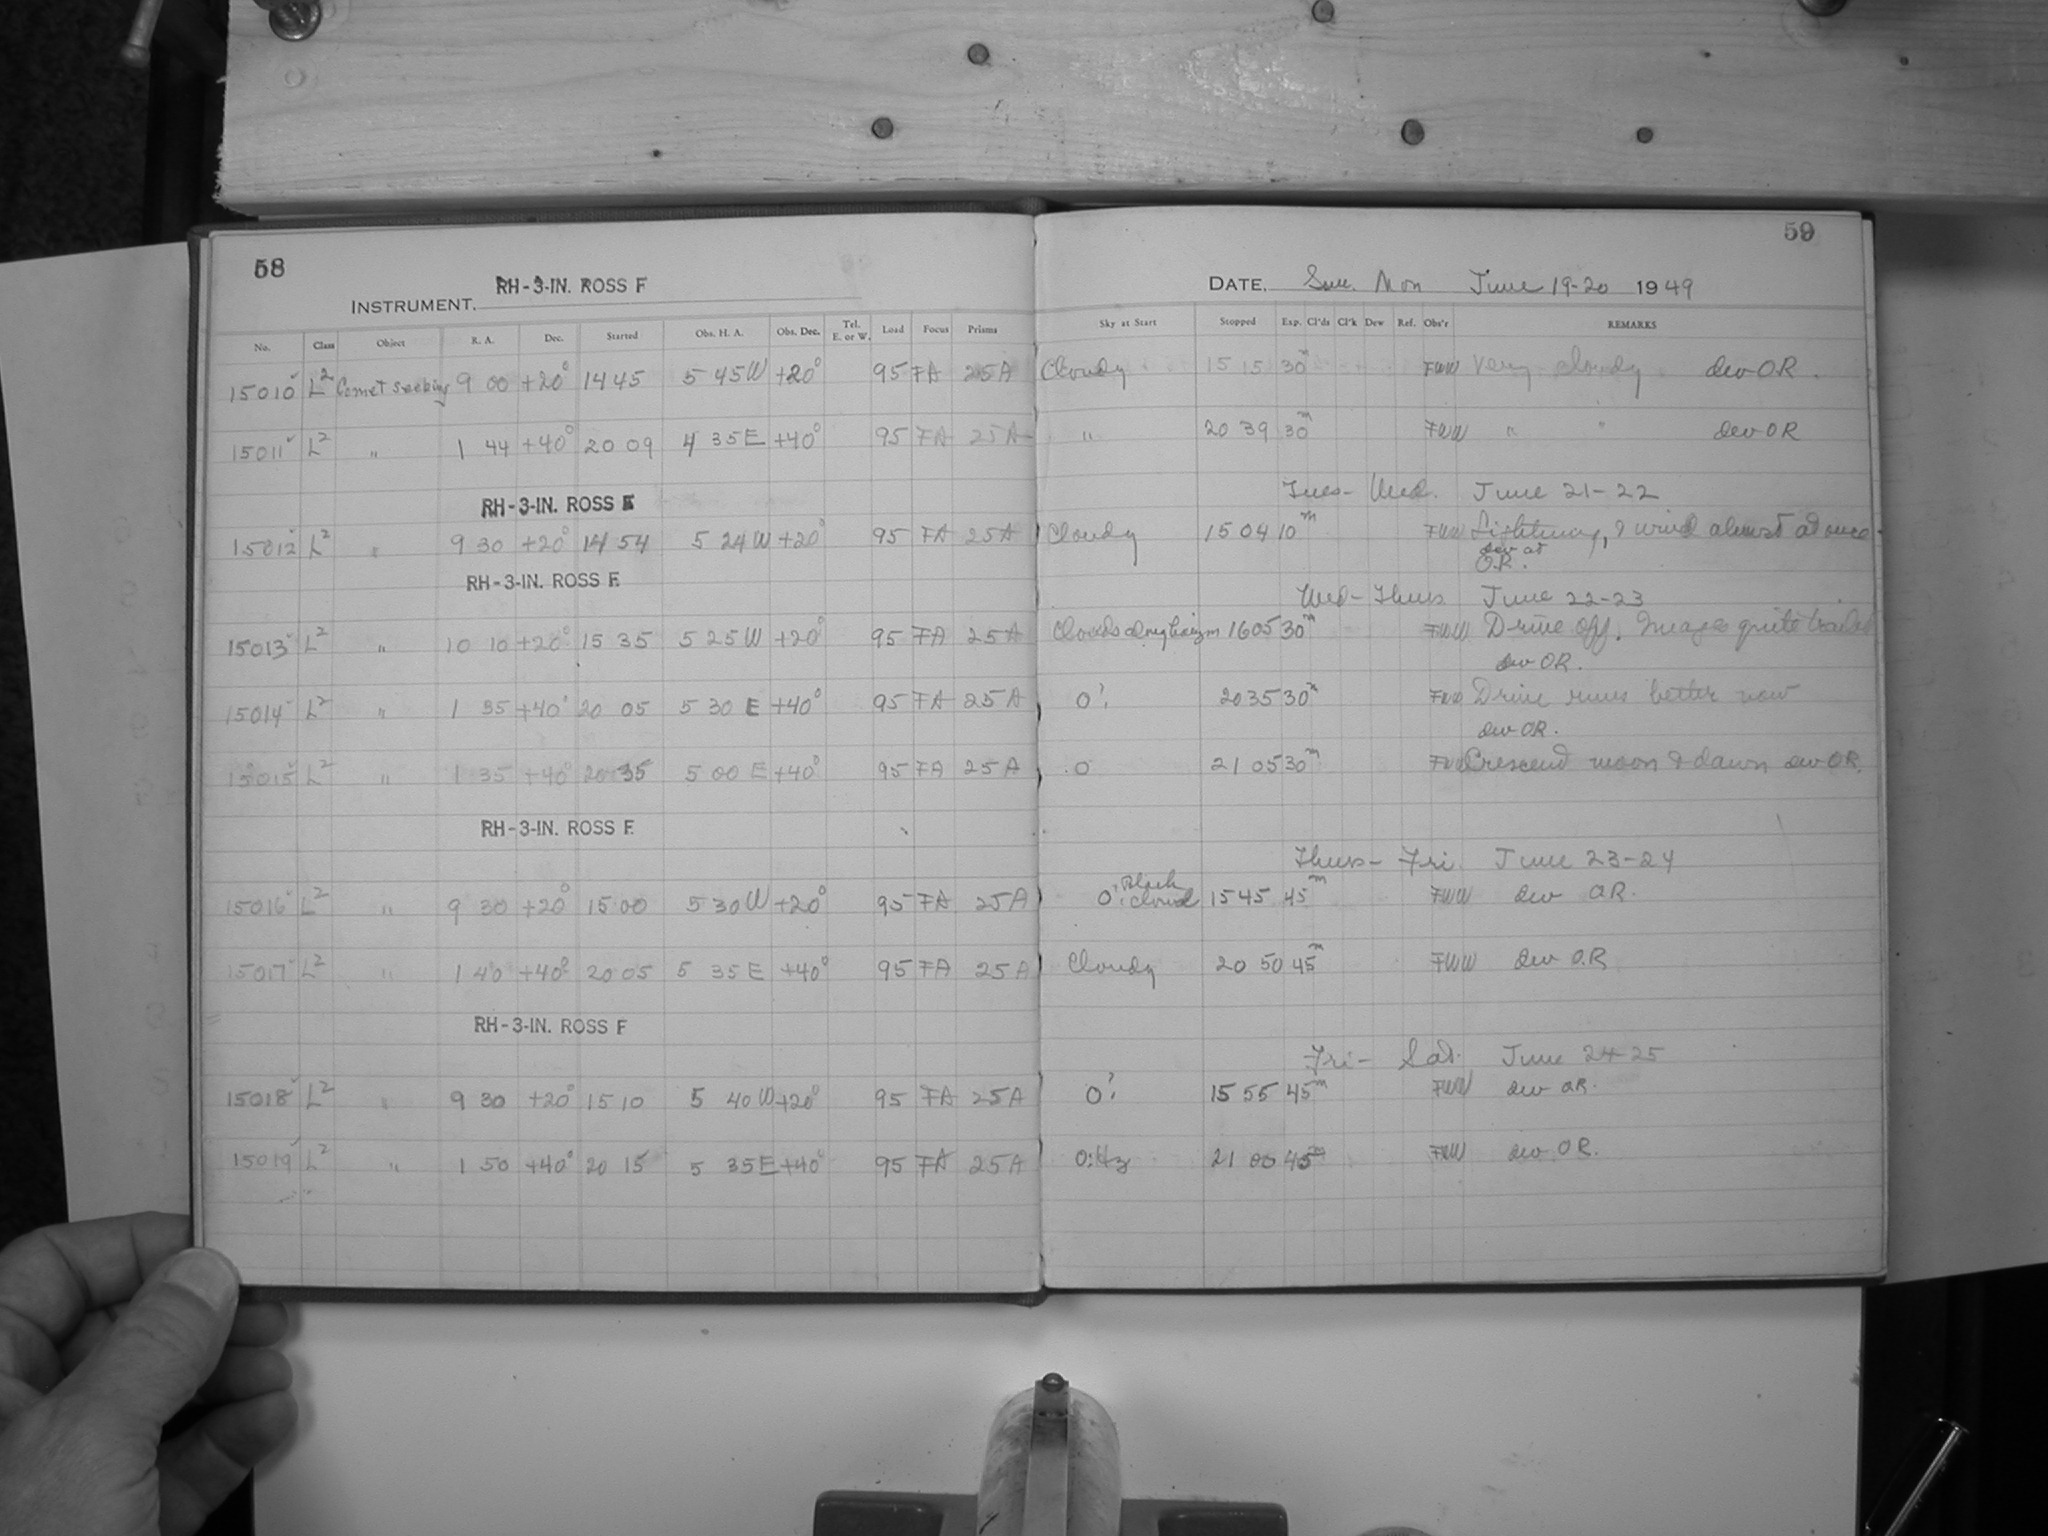 58
RH-3-IN. ROSS F
INSTRUMENT.
No. Class Object R. A. Dec. Started Obs. H. A. Obs. Dec. Tel. E. or W. Load Focus Prisms
15010 L² Comet seeking 9 00 +20° 14 45 5 45 W +20° 95 FA 25A
15011 L² " 1 44 +40° 20 09 4 35 E +40° 95 FA 25A
RH-3-IN. ROSS F
15012 L² " 9 30 +20° 14 54 5 24 W +20° 95 FA 25A
RH-3-IN. ROSS F.
15013 L² " 10 10 +20° 15 35 5 25 W +20° 95 FA 25A
15014 L² " 1 35 +40° 20 05 5 30 E +40° 95 FA 25A
15015 L² " 1 35 +40° 20 35 5 00 E +40° 95 FA 25A
RH-3-IN. ROSS F.
15016 L² " 9 30 +20° 15 00 5 30 W +20° 95 FA 25A
15017 L² " 1 40 +40° 20 05 5 35 E +40° 95 FA 25A
RH-3-IN. ROSS F
15018 L² " 9 30 +20° 15 10 5 40 W +20° 95 FA 25A
15019 L² " 1 50 +40° 20 15 5 35 E +40° 95 FA 25A
59
DATE. Sun. Mon June 19-20 1949
Sky at Start Stopped Exp. Cl'ds Cl'k Dew Ref. Obs'r REMARKS
Cloudy 15 15 30m FWW Very cloudy dev OR.
" 20 39 30m FWW " " dev OR
Tues- Wed. June 21-22
Cloudy 15 04 10m FWW Lightning, & wind almost at once.
dev at
O.R.
Wed- Thurs June 22-23
Clouds horizon 16 05 30m FWW Drive off. Images quite trailed
dev OR.
0? 20 35 30m FWW Drive runs better now
dev OR.
0 21 05 30m FWW Crescend moon & dawn dev OR.
Thurs- Fri. June 23-24
0? Black cloud 15 45 45m FWW dev OR.
Cloudy 20 50 45m FWW dev O.R
Fri- Sat. June 24-25
0? 15 55 45m FWW dev OR.
0:Hz 21 00 45m FWW dev OR.